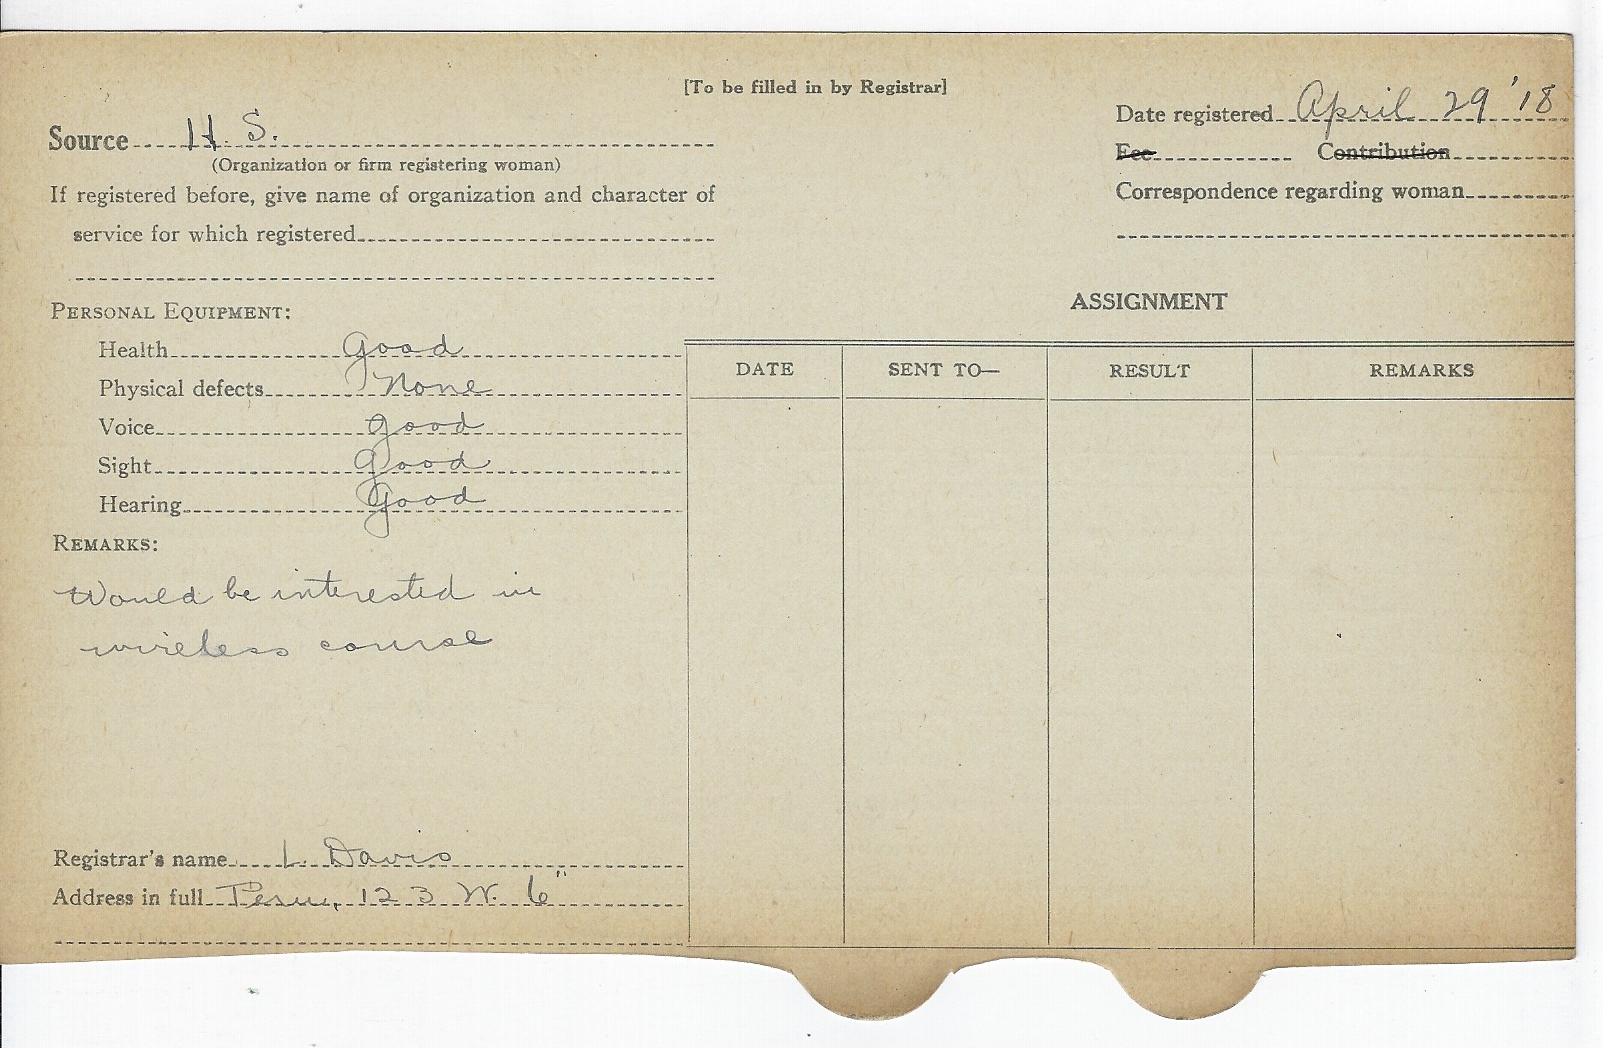 [To be filled in by Registrar]
Source H. S.
(Organization or firm registering woman)
If registered before, give name of organization and character of
service for which registered
Date registered April 29 '18
Fee Contribution
Correspondence regarding woman
PERSONAL EQUIPMENT:
Health Good
Physical defects None
Voice good
Sight Good
Hearing Good
REMARKS:
Would be interested in
wireless course
Registrar's name L. Davis
Address in full Peru, 123 W. 6"
ASSIGNMENT
DATE SENT TO— RESULT REMARKS